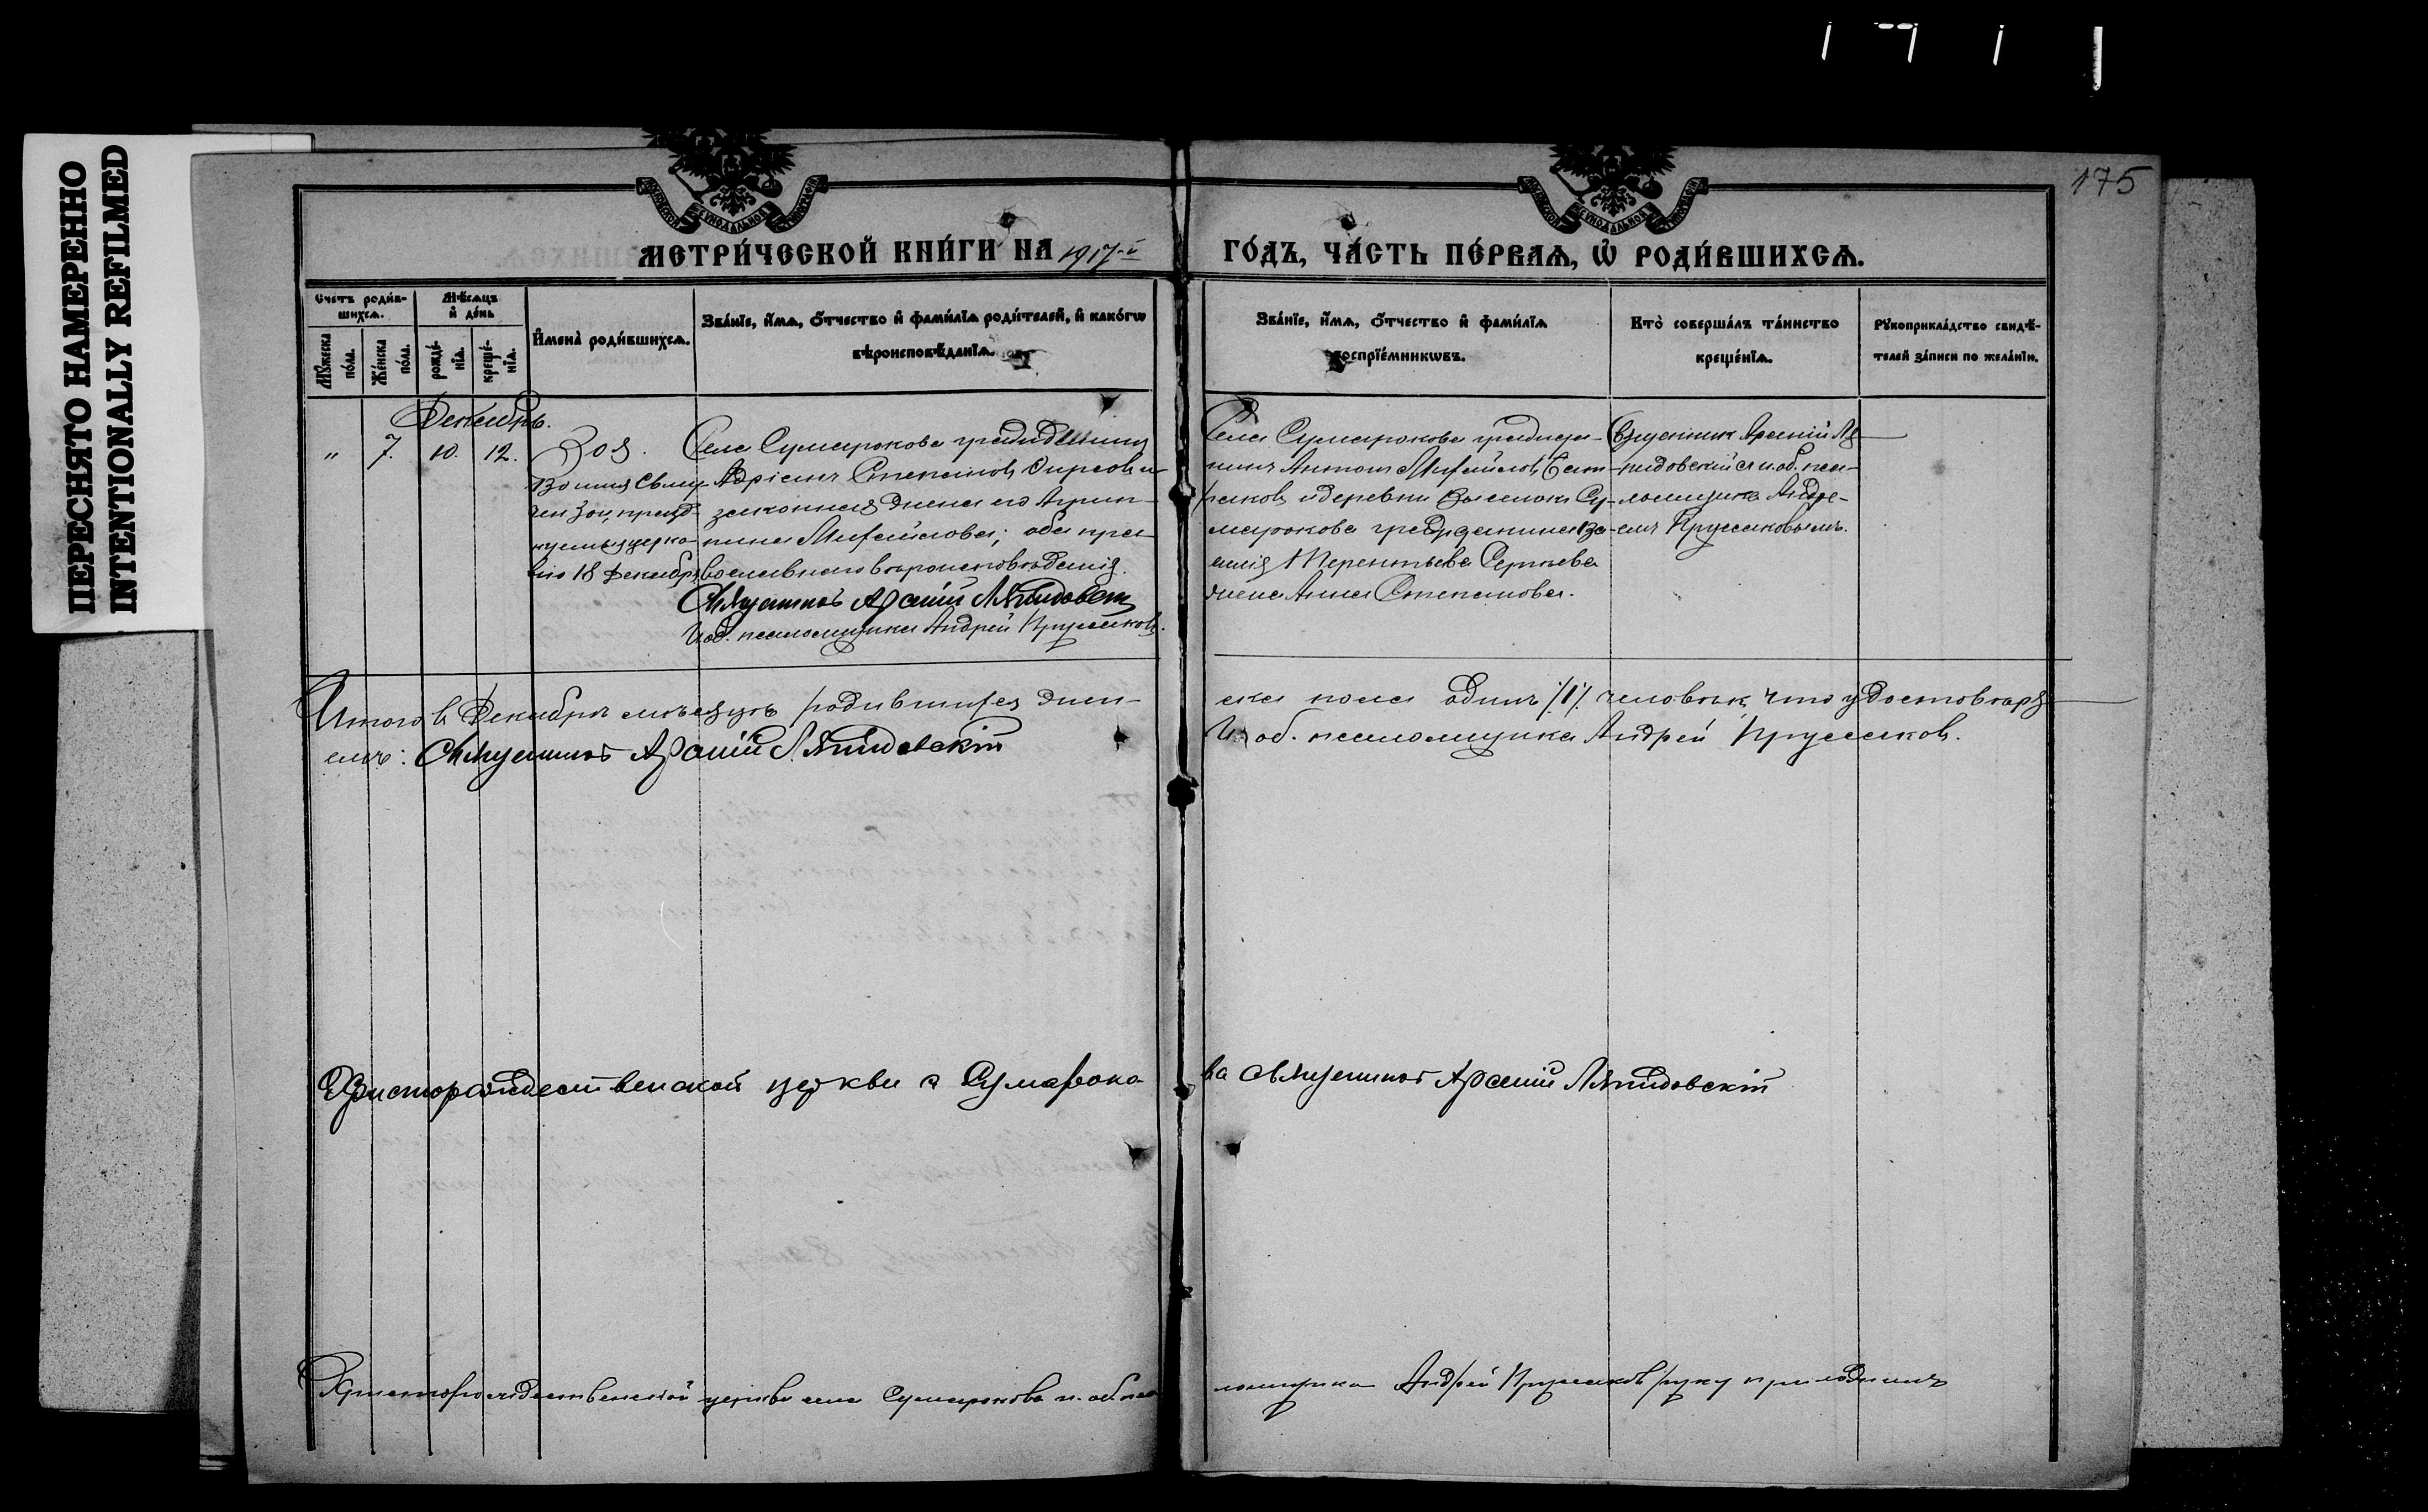 ПЕРЕСНЯТО НАМЕРЕННО
INTENTIONALLY REFILMED
175
МЕТРИ́ЧЕСКОЙ КНИ́ГИ НА 1917-й
ГО́ДЪ, ЧА́СТЬ ПЕ́РВАѦ, Ѿ РОДИ́ВШИХСѦ.
Счетъ роди́в-
шихсѧ.
Мꙋ́жеска
по́ла.
Же́нска
по́ла.
Мѣ́сѧцъ
и҆ де́нь
рожде́-
нїѧ.
креще́-
нїѧ.
И҆мена̀ роди́вшихсѧ.
Зва́нїе, и҆́мѧ, ѻ҆́тчество и҆ фами́лїѧ роди́телей, и҆ како́гѡ
вѣроисповѣ́данїѧ.
Зва́нїе, и҆́мѧ, ѻ҆́тчество и҆ фами́лїѧ
воспрїе́мникѡвъ.
Кто̀ соверша́лъ та́инство
креще́нїѧ.
Рꙋкоприкла́дство свидѣ́-
телей за́писи по жела́нїю.
Декабрь.
" 7. 10. 12.
Зоя.
Во имя св. му-
чен. Зои, празд-
нуемыя церко-
вію 18 Декабря
Села Сумарокова гражданинъ
Адріанъ Степановъ и
законная жена его Агрип-
пина Михайлова; оба пра-
вославнаго вѣроисповѣданія.
Священникъ Арсеній Ляпидовскій
И. об. псаломщика Андрей Круглаковъ.
Села Сумарокова гражда-
нинъ Антонъ Михайловъ
и деревни Выселокъ Су-
марокова гражданина
Терентьева Сергѣева
жена Анна Степанова.
Священник Арсеній Ля-
пидовскій с и. об. пса-
ломщика Андре-
емъ Круглаковымъ.
Итого въ Декабрѣ мѣсяцѣ родившихся жен-
ска пола одинъ /1/ человѣк, что удостовѣря-
емъ: Священникъ Арсеній Ляпидовскій
И. об. псаломщика Андрей Круглаков.
Христорождественской церкви с. Сумароко-
ва священникъ Арсеній Ляпидовскій
Христорождественской церкви села Сумарокова и. об. пса-
ломщика Андрей Круглаковъ руку приложилъ